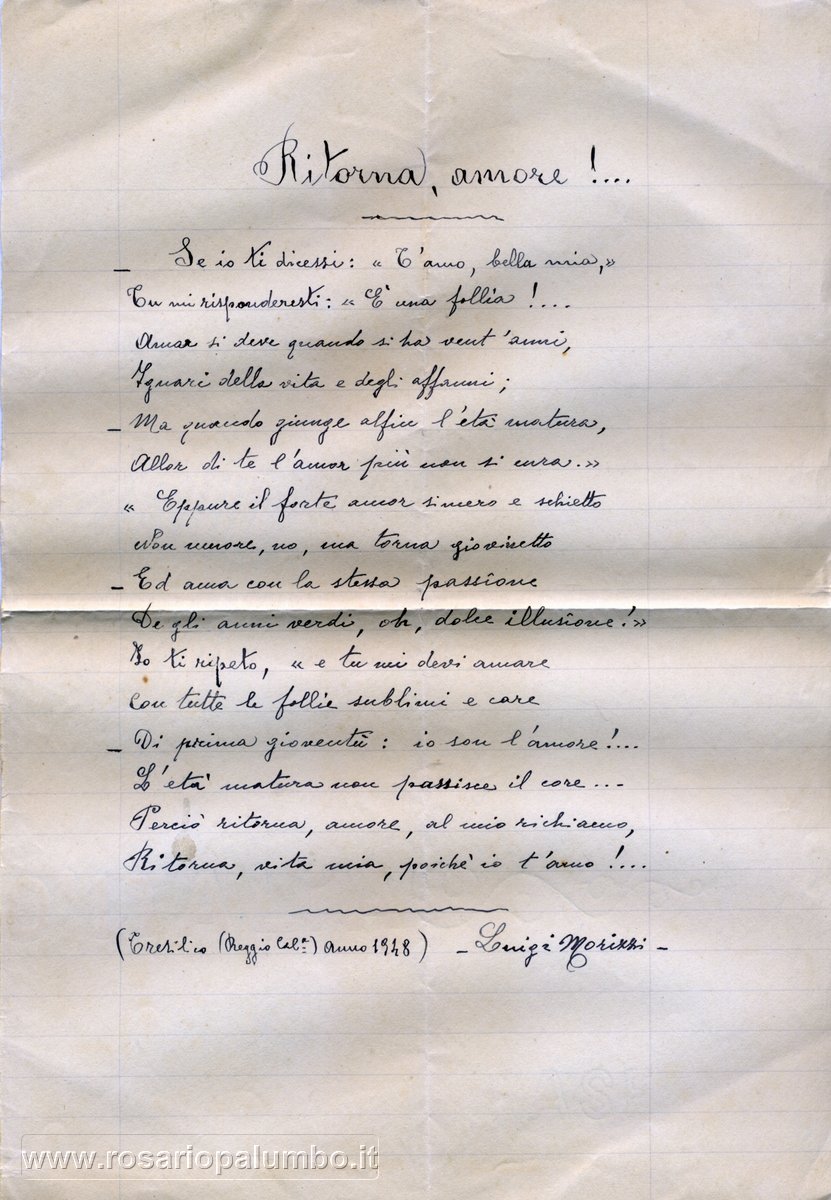 Ritorna, amore !...
_ Se io ti dicessi: « T'amo, bella mia,»
Tu mi risponderesti: « È una follia !...
Amar si deve quando si ha vent'anni,
Ignari della vita e degli affanni;
_ Ma quando giunge alfin l'età matura,
Allor di te l'amor più non si cura.»
« Eppure il forte amor sincero e schietto
Non muore, no, ma torna giovinetto
_ Ed ama con la stessa passione
De gli anni verdi, oh, dolce illusione!»
Io ti ripeto, « e tu mi devi amare
Con tutte le follie sublimi e care
_ Di prima gioventù: io son l'amore!...
L'età matura non passisce il core...
Perciò ritorna, amore, al mio richiamo,
Ritorna, vita mia, poiché io t'amo !...
(Tresilico (Reggio Cal.ª) Anno 1948) _ Luigi Morizzi _
www.rosariopalumbo.it